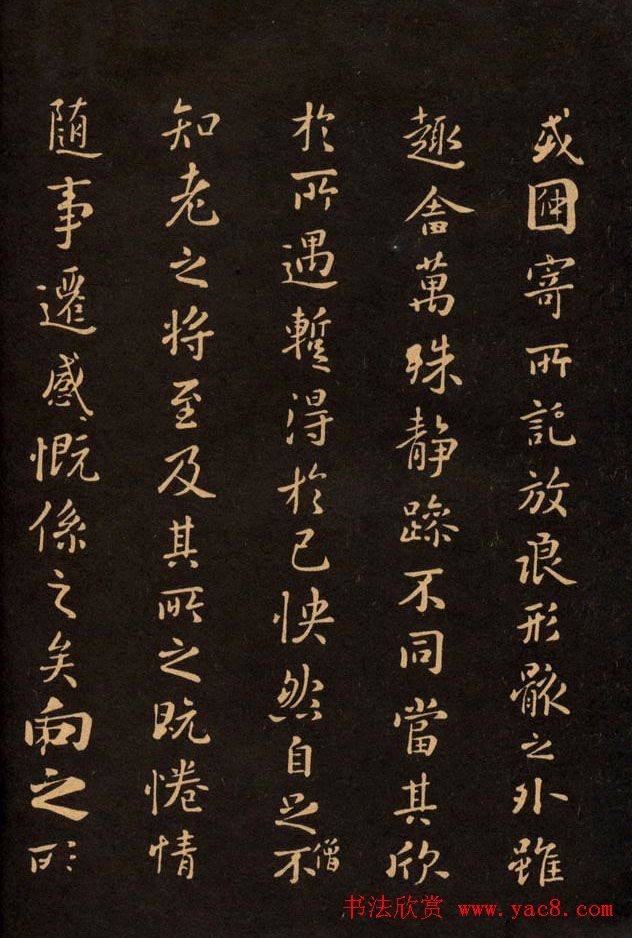 或因寄所託放浪形骸之外雖
趣舍萬殊靜躁不同當其欣
僧
於所遇蹔得於己怏然自足不
知老之將至及其所之既惓情
隨事遷感慨係之矣向之所
书法欣赏 www.yac8.com